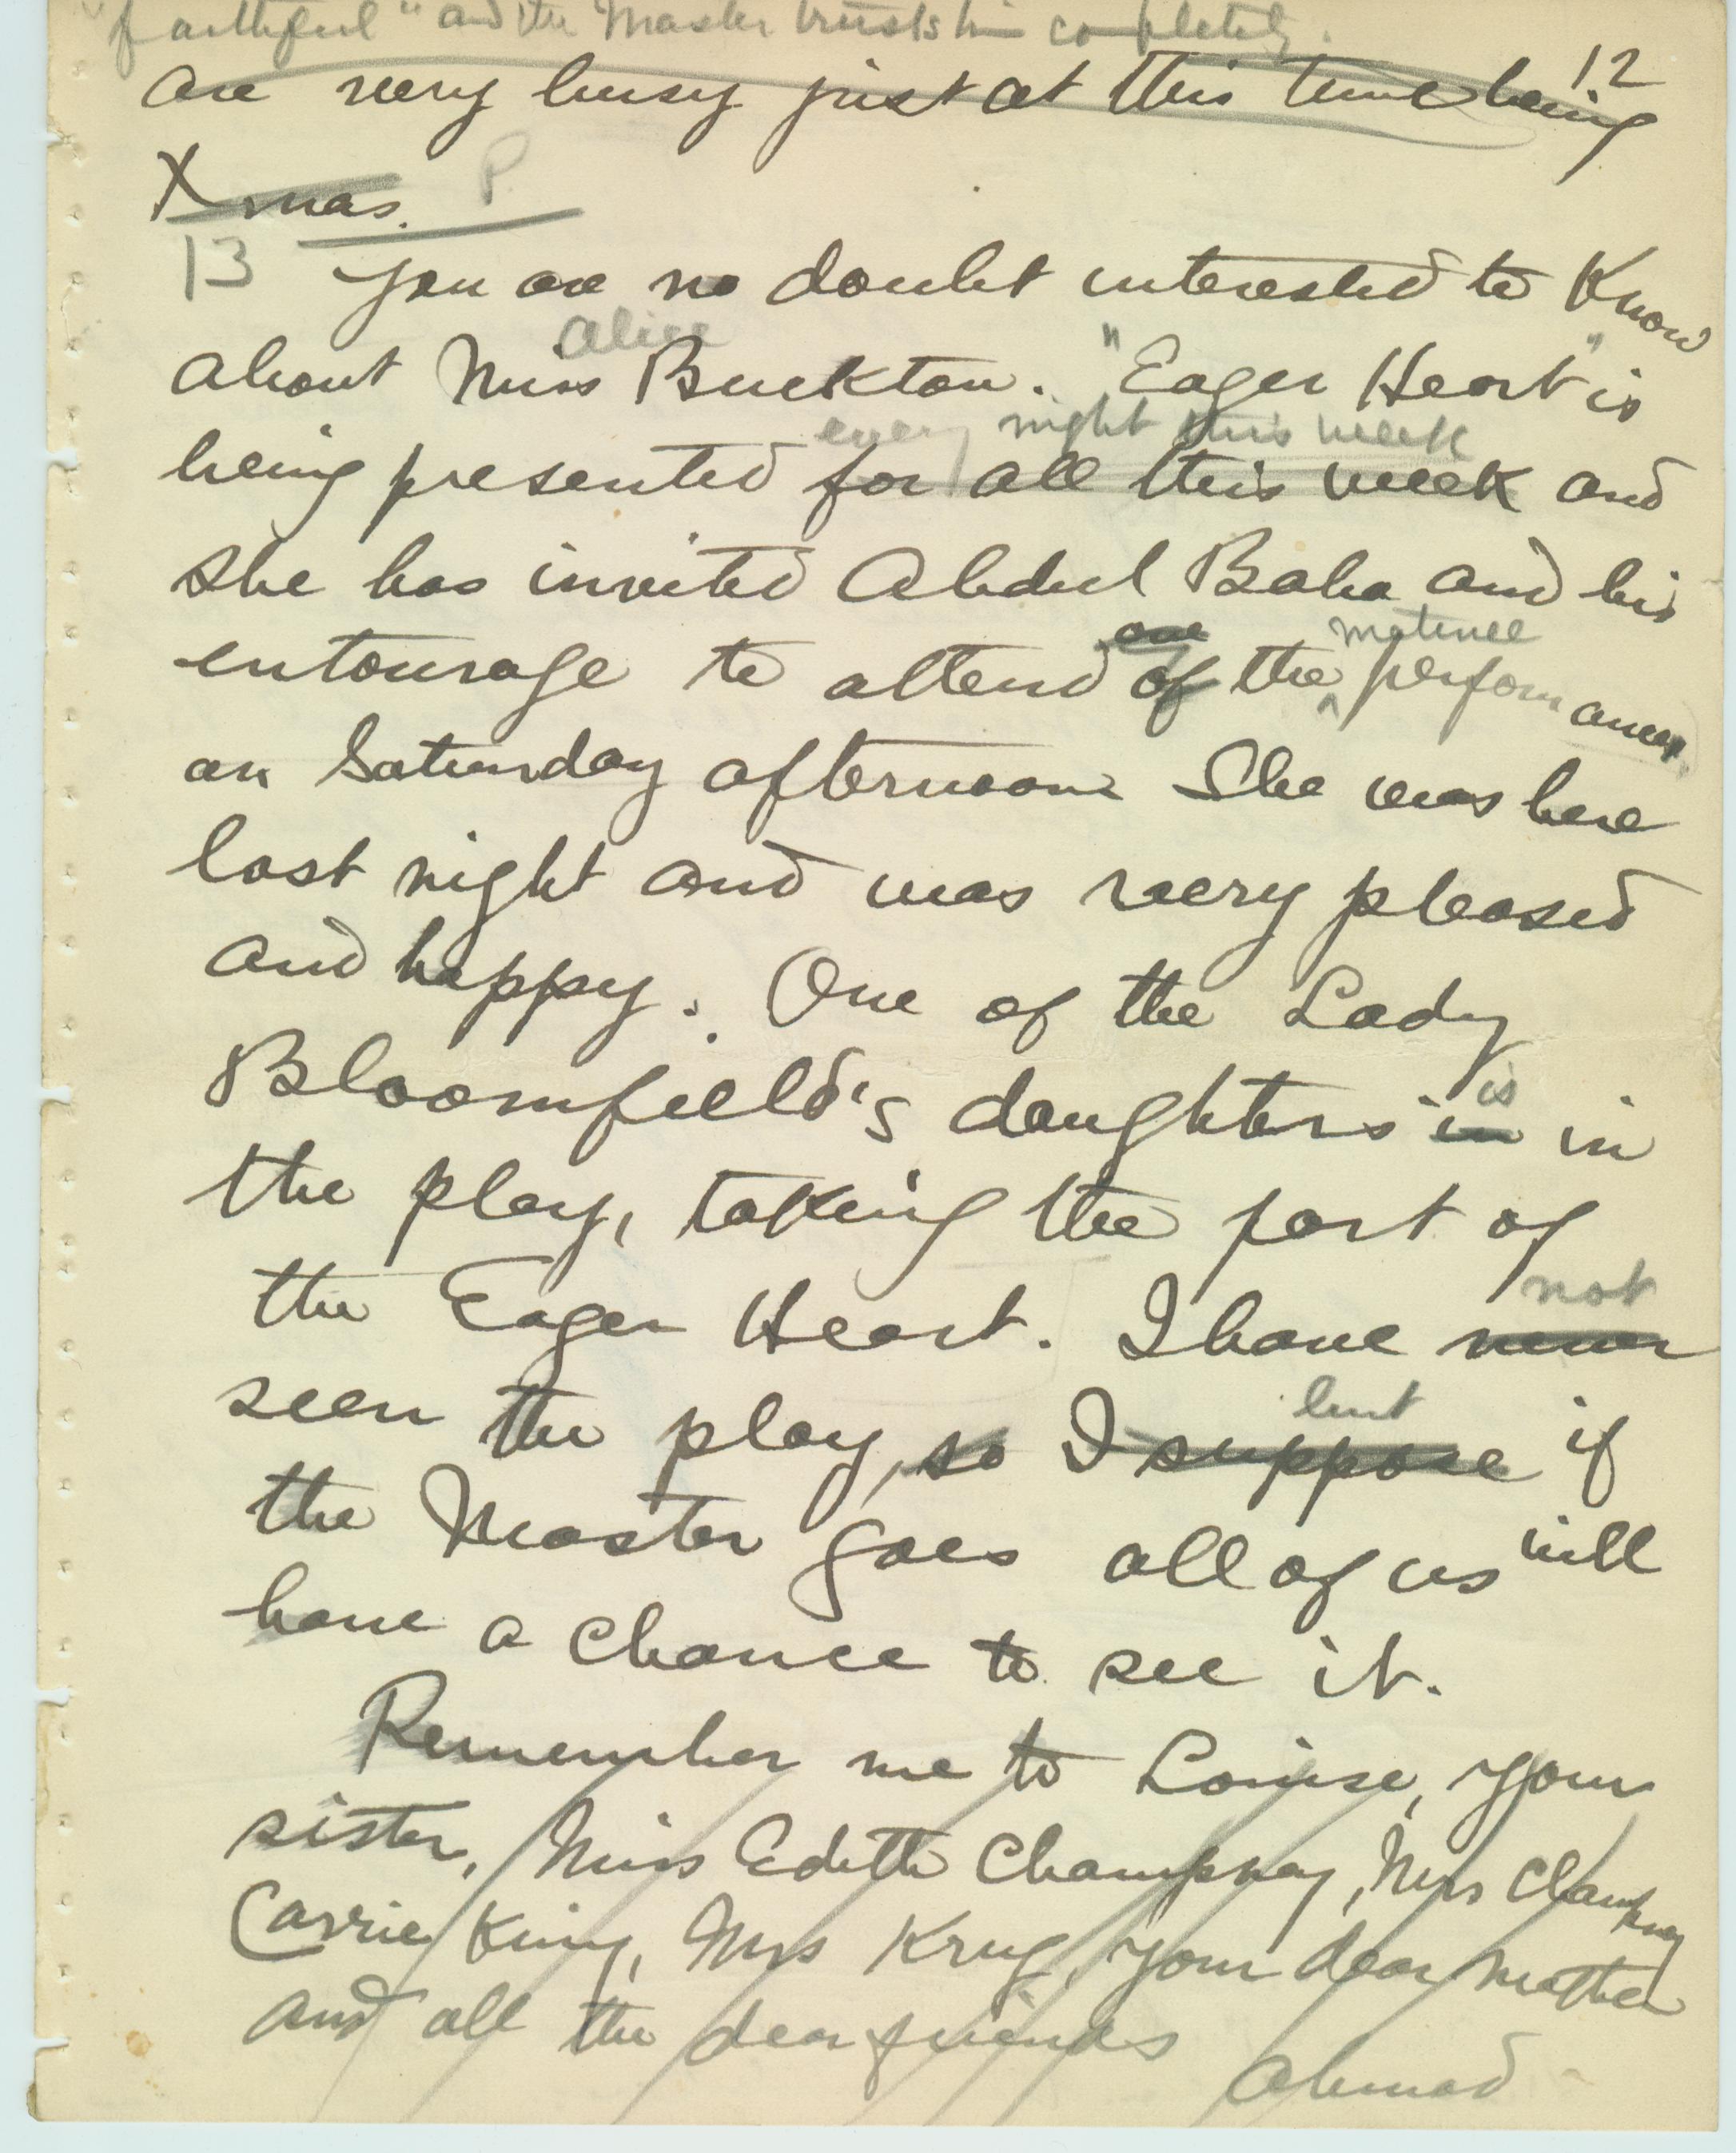 "faithful" and the Master trusts him completely.
12
are very busy just at this time being
Xmas. P.
13 You are no doubt interested to Know
Alice
about Miss Buckton. "Eager Heart" is
every night this week
being presented for all this week and
she has invited Abdul Baha and his
one matinee
entourage to attend of the ^ performances
on Saturday afternoon She was here
last night and was very pleased
and happy. One of the Lady
is
Bloomfield's daughters in in
the play, taking the part of
not
the Eager Heart. I have never
but
seen the play, so I suppose if
the Master goes all of us will
have a chance to see it.
Remember me to Louise, your
sister, Miss Edith Champney, Mrs Champney
Carrie King, Mrs Krug, your dear mother
and all the dear friends
Ahmad